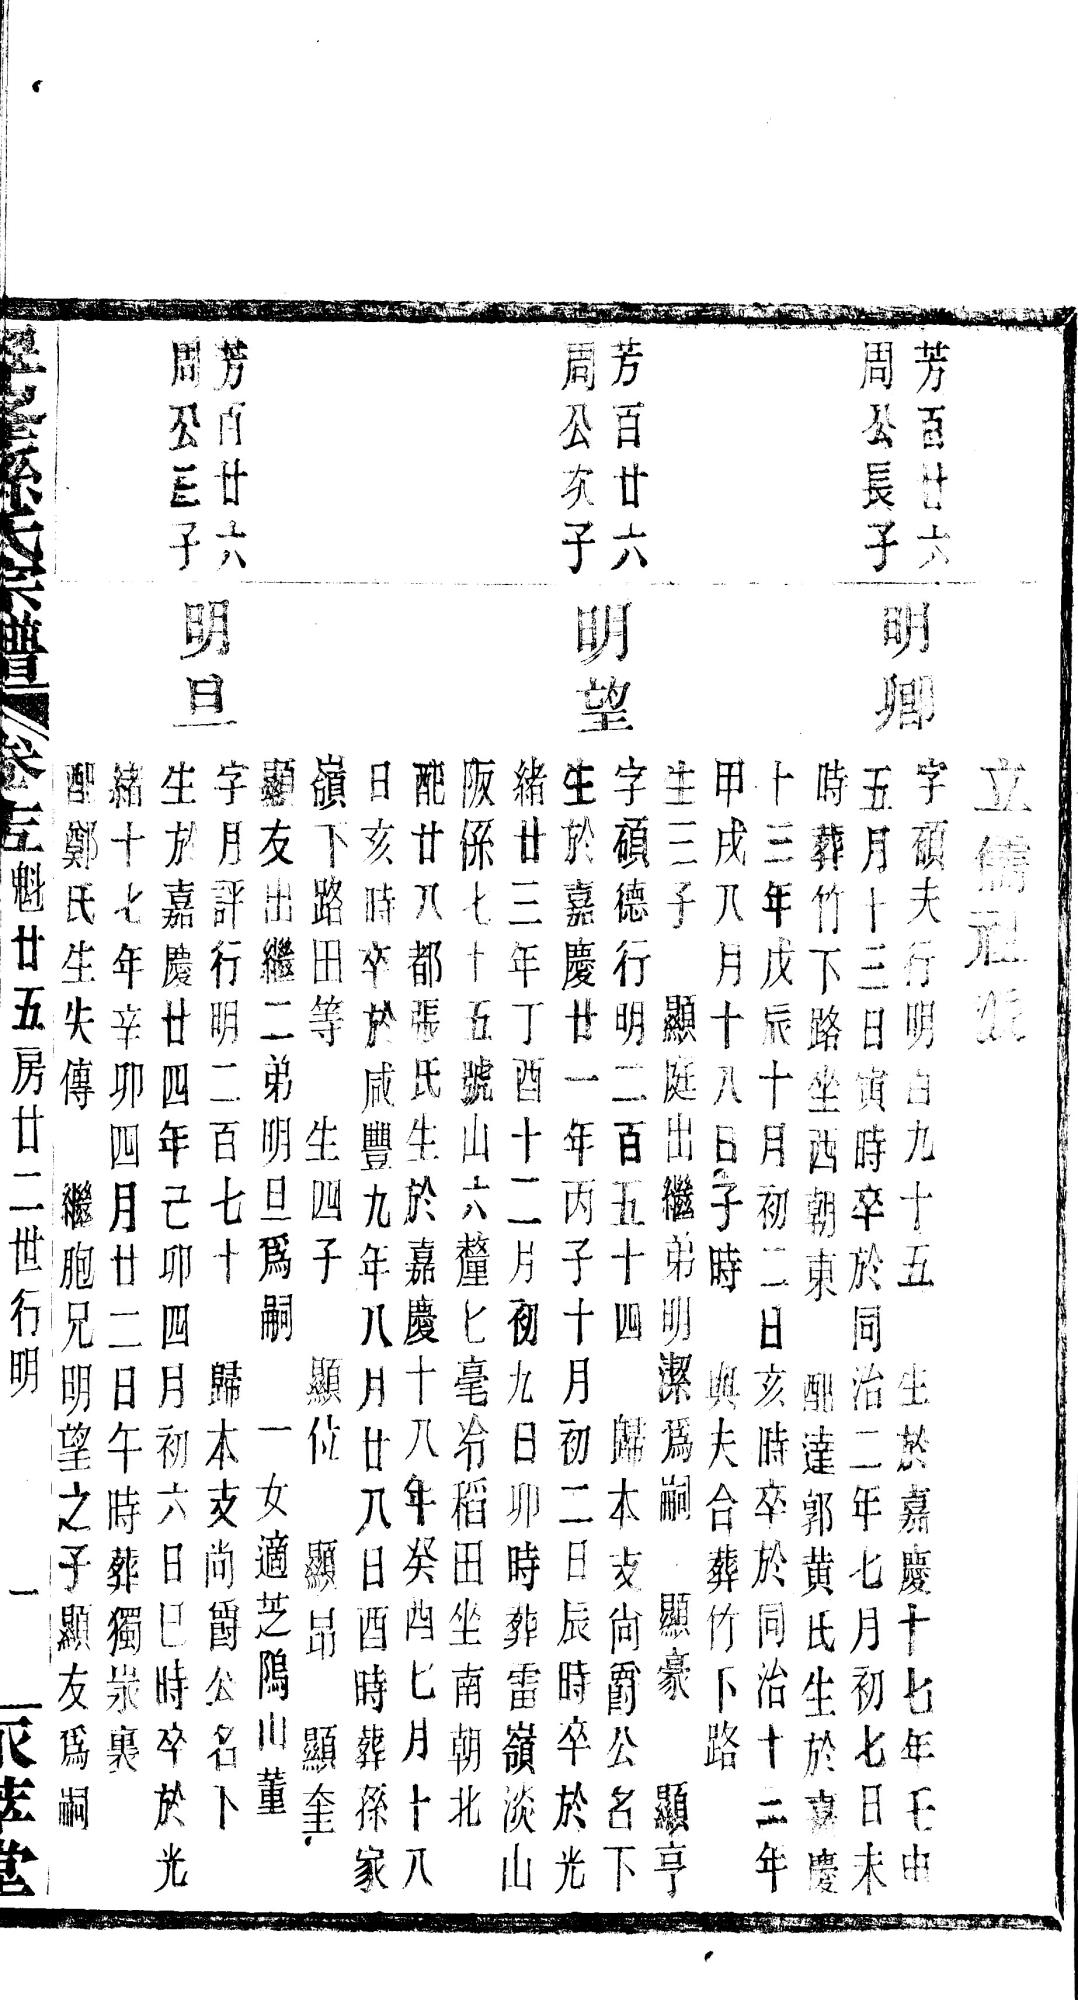 立儒祖派
芳百廿六
周公長子
明卿
字碩夫行明百九十五　生於嘉慶十七年壬申
五月十三日寅時卒於同治二年七月初七日未
時葬竹下路坐西朝東　配達郭黄氏生於嘉慶
十三年戊辰十月初二日亥時卒於同治十二年
甲戌八月十八日子時　與夫合葬竹下路
生三子　顯庭出繼弟明潔爲嗣　顯豪　顯亨
芳百廿六
周公次子
明望
字碩德行明二百五十四　歸本支尚爵公名下
生於嘉慶廿一年丙子十月初二日辰時卒於光
緒廿三年丁酉十二月初九日卯時葬雷嶺淡山
阪係七十五號山六釐七毫冷稻田坐南朝北
配廿八都張氏生於嘉慶十八年癸酉七月十八
日亥時卒於咸豐九年八月廿八日酉時葬孫家
嶺下路田等　生四子　顯位　顯昂　顯奎
顯友出繼二弟明旦爲嗣　一女適芝隖山董
芳百廿六
周公三子
明旦
字月評行明二百七十　歸本支尚爵公名下
生於嘉慶廿四年己卯四月初六日巳時卒於光
緒十七年辛卯四月廿二日午時葬獨裏
配鄭氏生失傳　繼胞兄明望之子顯友爲嗣
孫氏宗譜　卷　魁廿五房廿二世行明　一　萃堂